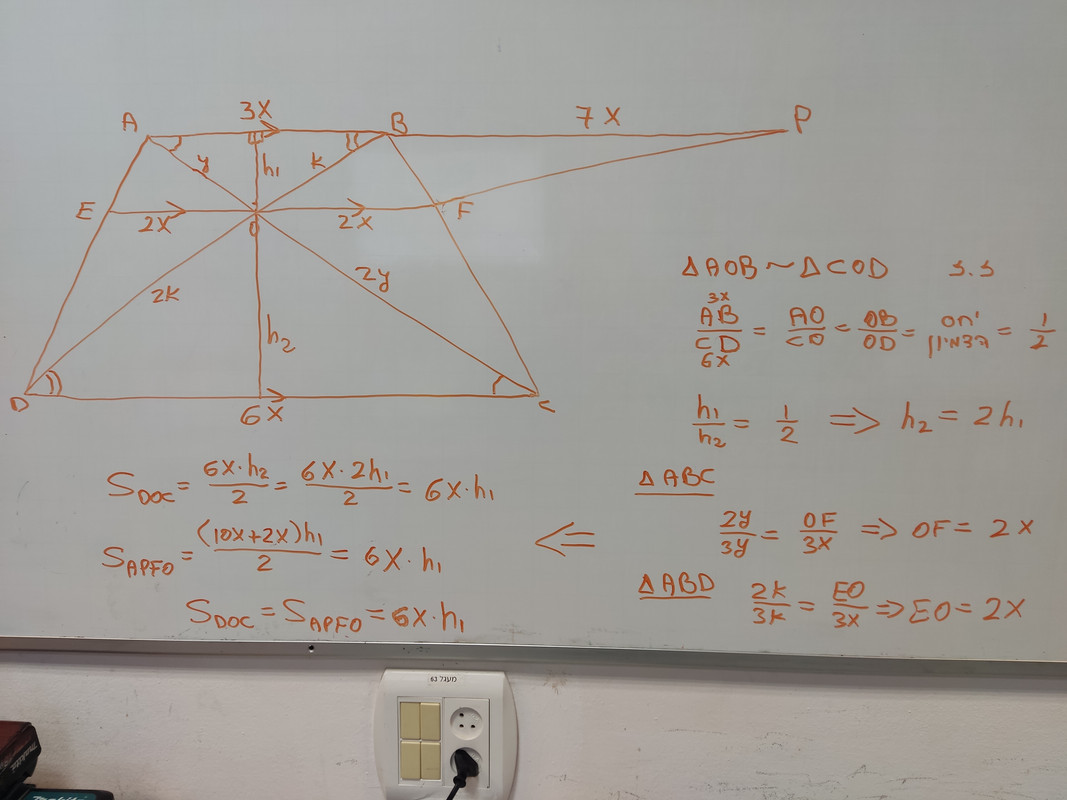 3X
7X
A
B
P
y
h₁
k
E
2X
O
2X
F
2k
2y
h₂
D
6X
C
ΔAOB ~ ΔCOD ז.ז
3X
AB/CD = AO/CO = OB/OD = יחס הדמיון = 1/2
6X
h₁/h₂ = 1/2 ⇒ h₂ = 2h₁
ΔABC
2y/3y = OF/3X ⇒ OF = 2X
ΔABD
2K/3K = EO/3X ⇒ EO = 2X
⇐
S_DOC = 6X·h₂/2 = 6X·2h₁/2 = 6X·h₁
S_APFO = (10X+2X)h₁/2 = 6X·h₁
S_DOC = S_APFO = 6X·h₁
מעגל 61
Makita